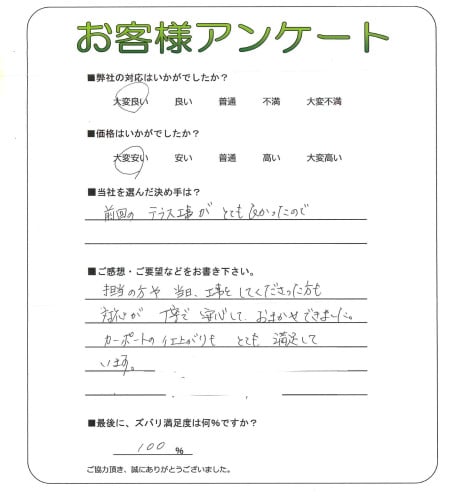 お客様アンケート
■弊社の対応はいかがでしたか？
大変良い 良い 普通 不満 大変不満
■価格はいかがでしたか？
大変安い 安い 普通 高い 大変高い
■当社を選んだ決め手は？
前回の テラス工事が とても良かったので
■ご感想・ご要望などをお書き下さい。
担当の方や 当日、工事をしてくださった方も
対応が 丁寧で 安心して、おまかせできました。
カーポートの仕上がりも とても 満足して
います。
■最後に、ズバリ満足度は何％ですか？
100 ％
ご協力頂き、誠にありがとうございました。